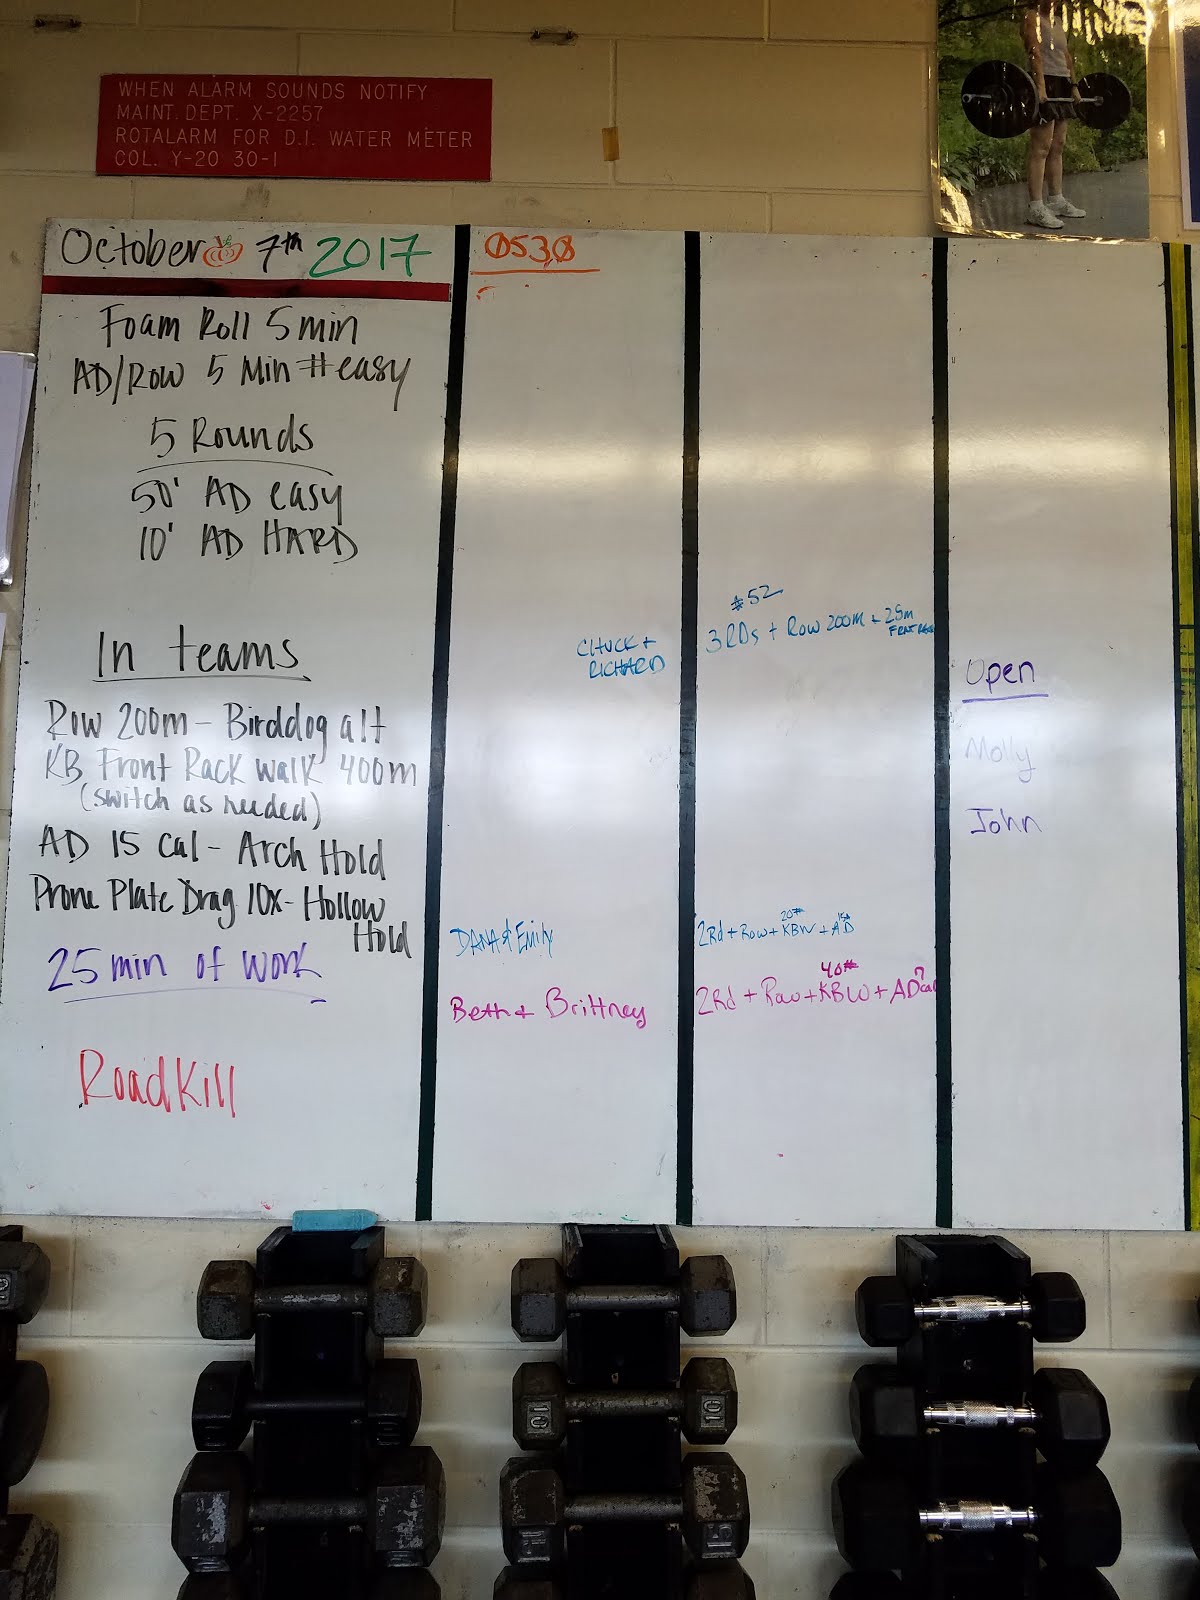 WHEN ALARM SOUNDS NOTIFY
MAINT. DEPT. X-2257
ROTALARM FOR D.I. WATER METER
COL. Y-20 30-1
October 7th 2017
Foam Roll 5 min
AD/Row 5 Min #easy
5 Rounds
50' AD easy
10' AD HARD
In teams
Row 200m - Birddog alt
KB Front Rack walk 400m
(switch as needed)
AD 15 cal - Arch Hold
Prone Plate Drag 10x - Hollow
Hold
25 min of work
RoadKill
0530
CHUCK +
RICHARD
DANA & Emily
Beth + Brittney
#52
3RDs + Row 200m + 25m
FRNT RACK
20#
2Rd + Row + KBW + AD
40#
2Rd + Row + KBW + AD 7 cal
Open
Molly
John
10
10
15